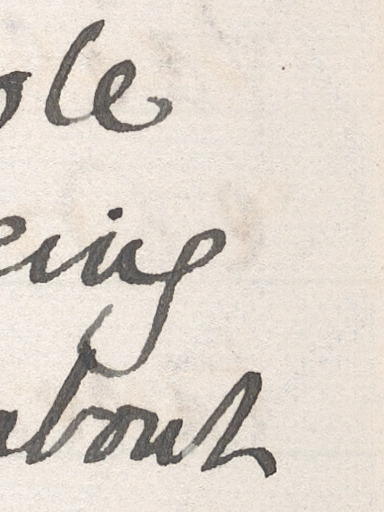 ole
eing
about